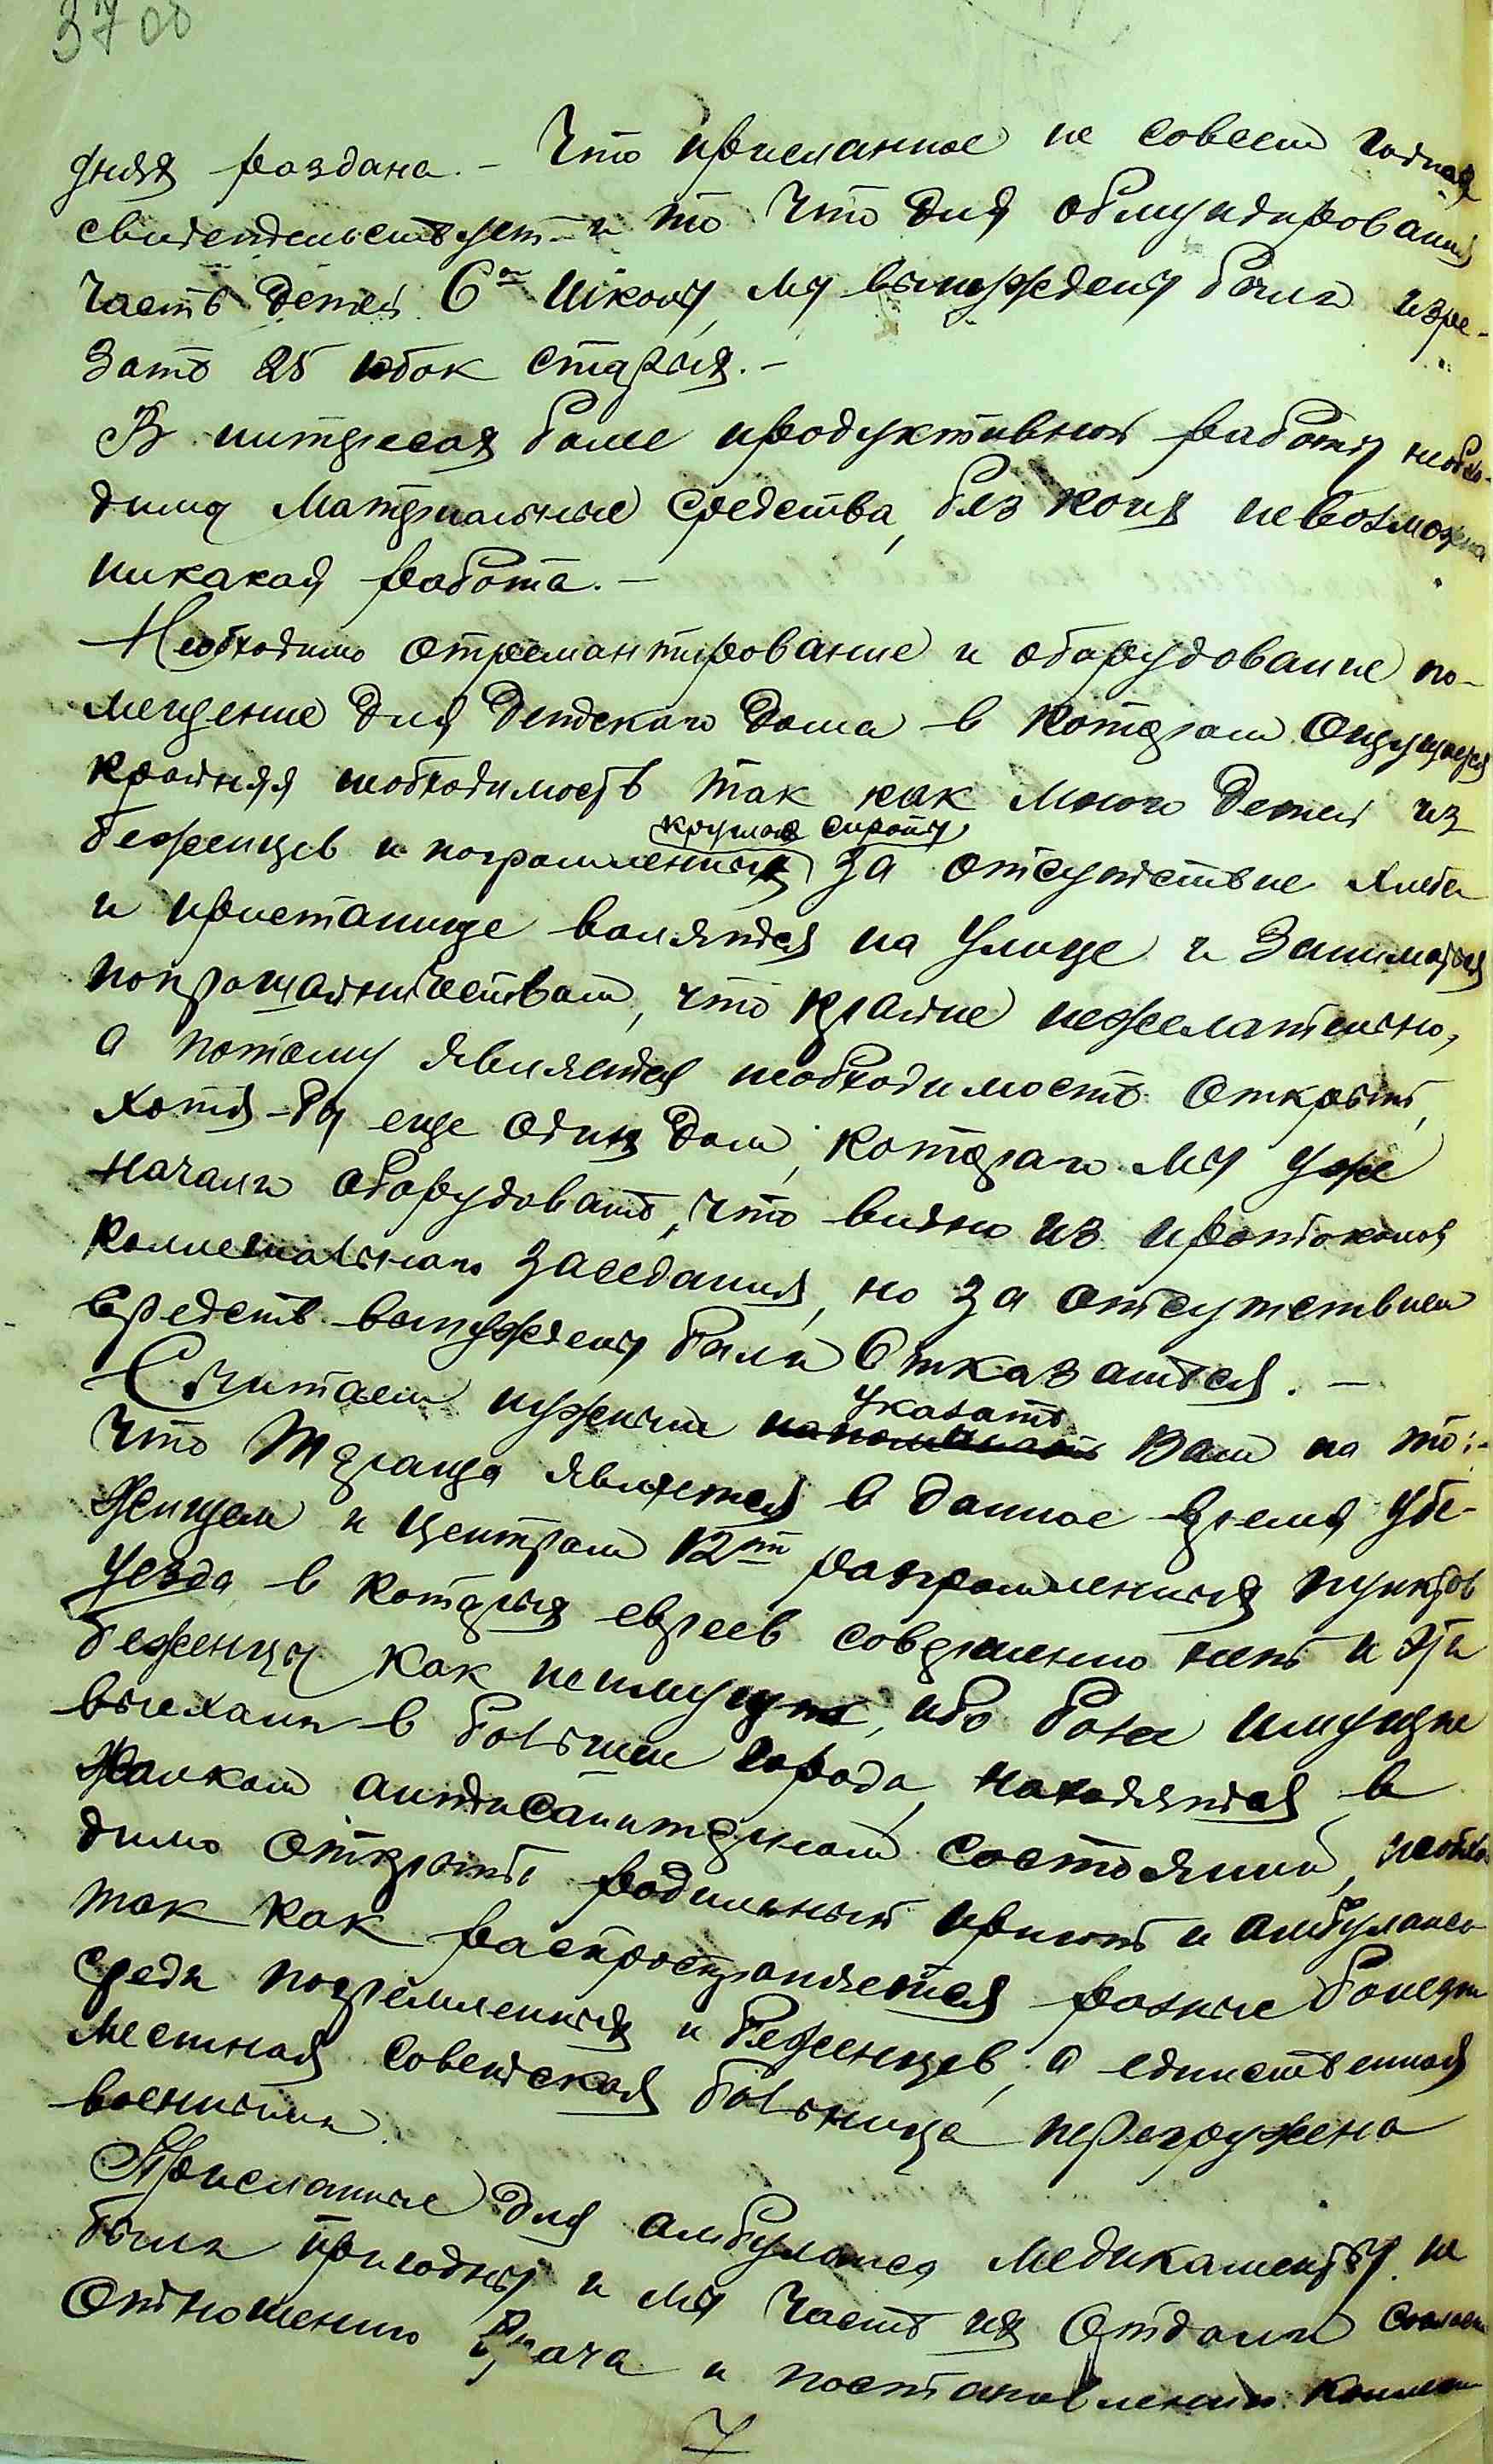 3700
дняя роздана. - Что присланное не совсем годная
свидетельствует и то что для обмундирования
часть детей 6ой школы, мы вынуждены были изре-
зать 25 юбок старыя. -
В интересах более продуктивной работы необхо-
димы материальные средства, без коих невозможна
никакая работа. -
Необходимо отремантирование и оборудование по-
мещение для детскаго дома в котором ощущается
крайняя необходимость так как много детей из
беженцев и погромленных за отсутствие хлеба
круглые сироты
и пристанище валяются на улице и занимаются
попрошайничеством, что крайне нежелательно,
а потому является необходимость открыть,
хотя-бы еще один дом, котораго мы уже
начали оборудовать, что видно из протоколов
коллегиальнаго заседания, но за отсутствием
средств вынуждены были отказаться. -
Считаем нужным указать Вам на то:-
что Тараща является в данное время убе-
жищем и центром 12ти разгромленных пунктов
уезда, в которых евреев совершенно нет и эти
беженцы как неимущие, ибо более имущие
выехали в большие города, находятся в
жалком антисанитарном состоянии, необхо-
димо открыть родильный приют и амбуланс
так как распространяется разные болезни
среди погромленных и беженцев, а единственная
местная советская больница перегружена
военными.
Присланные для амбуланса медикаменты не
были пригодны и мы часть их отдали согласно
отношению врача и постановлению коллегии
7